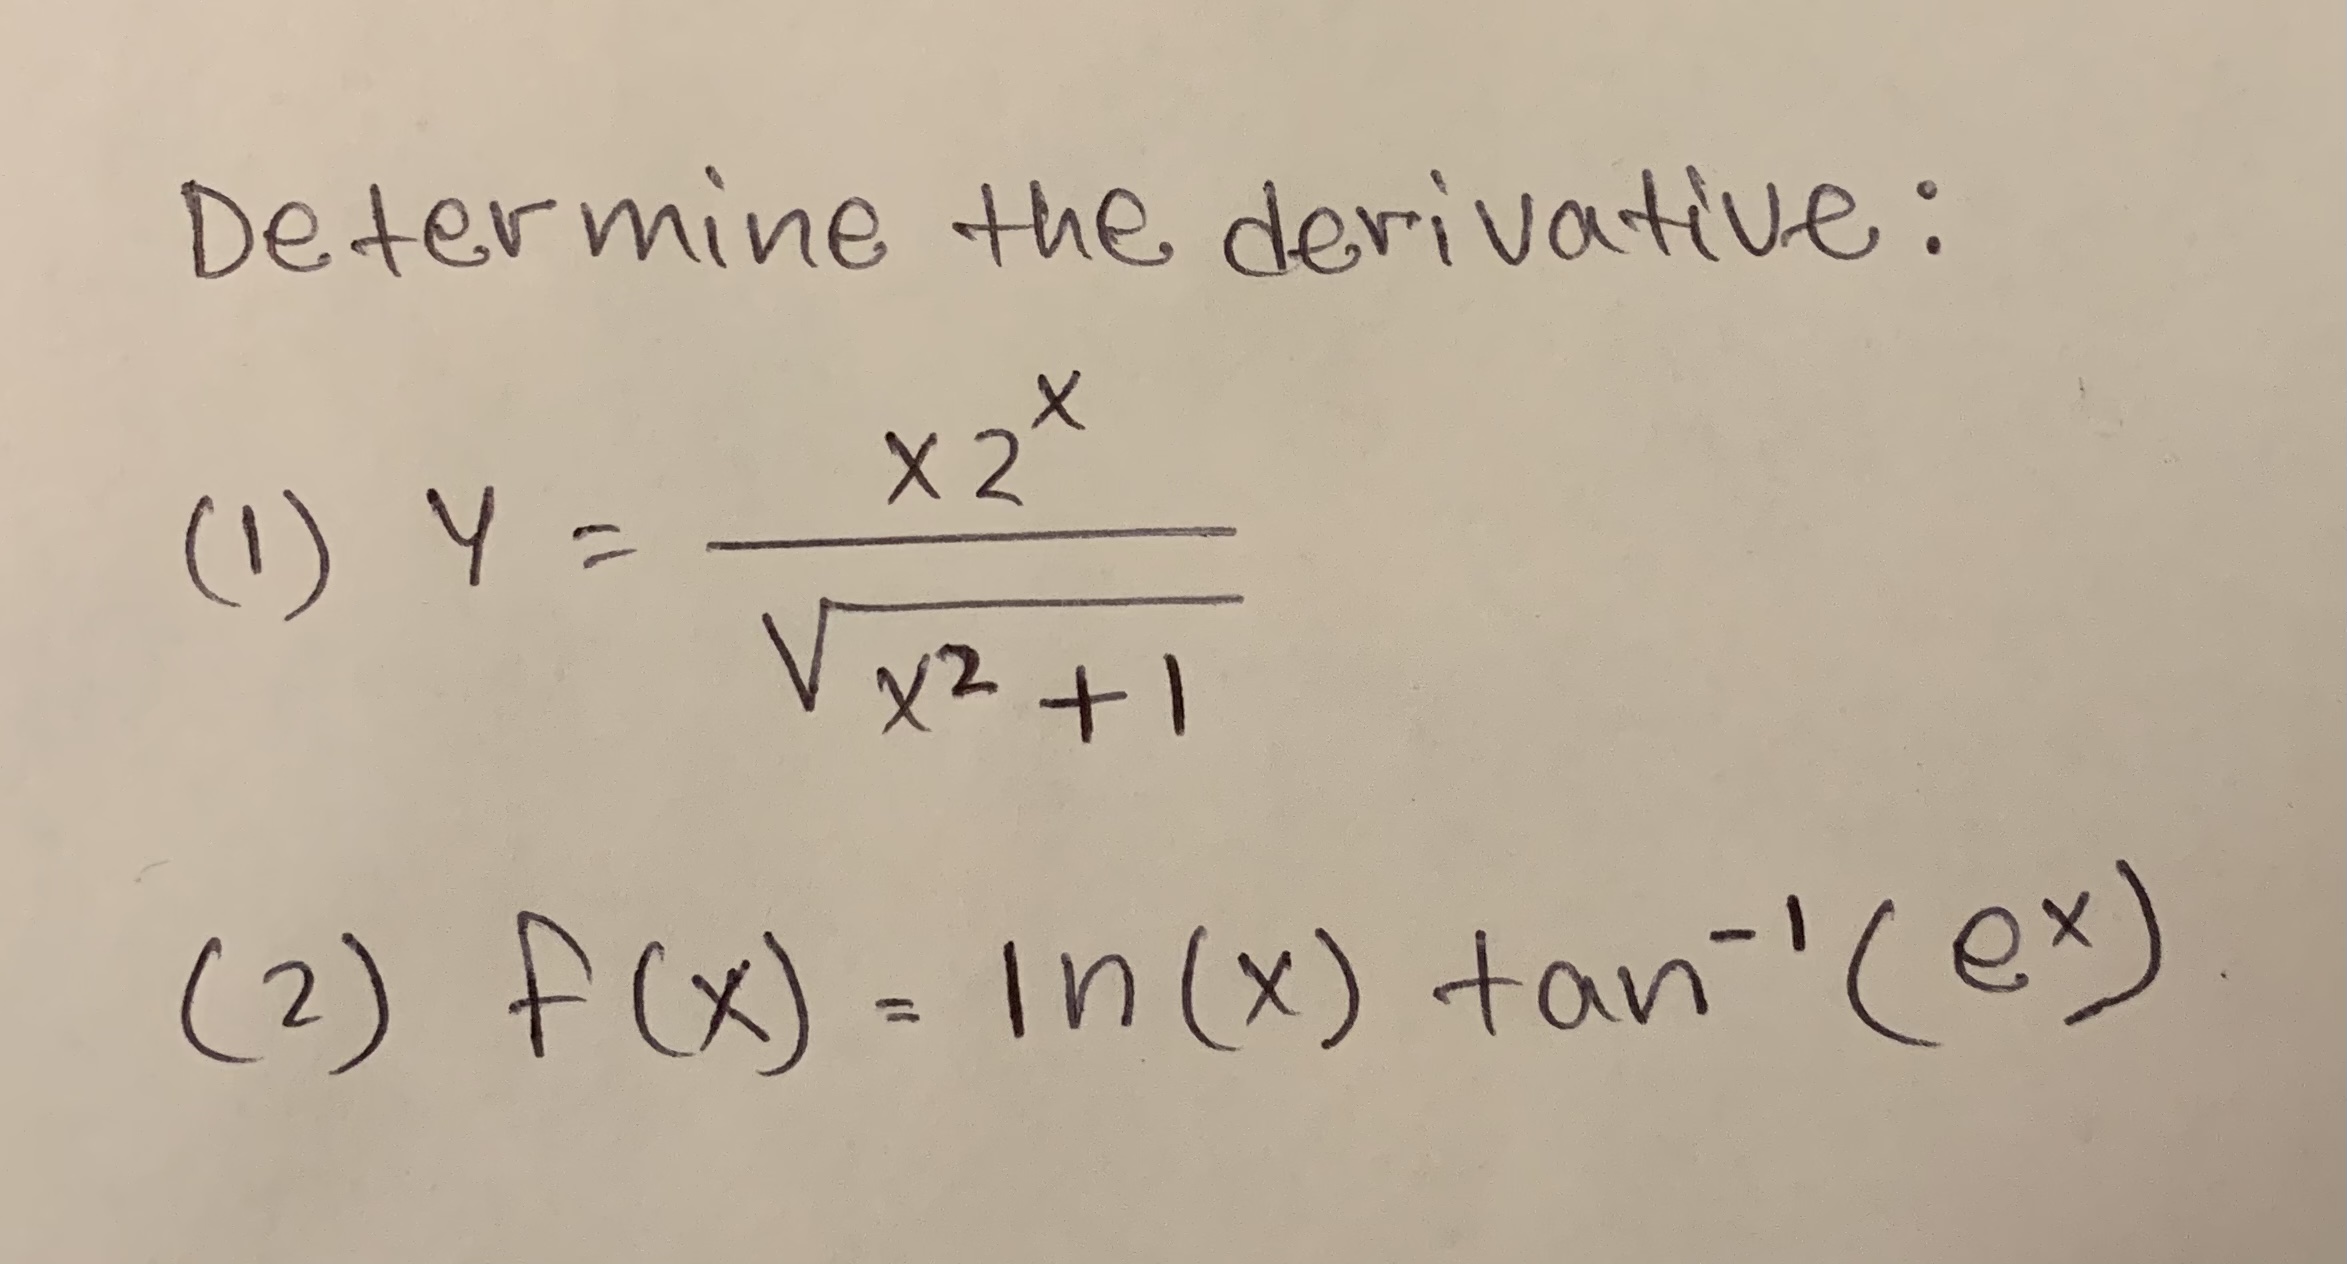 Determine the derivative:
(1) y = x2^x / √(x² + 1)
(2) f(x) = ln(x) tan⁻¹(e^x).